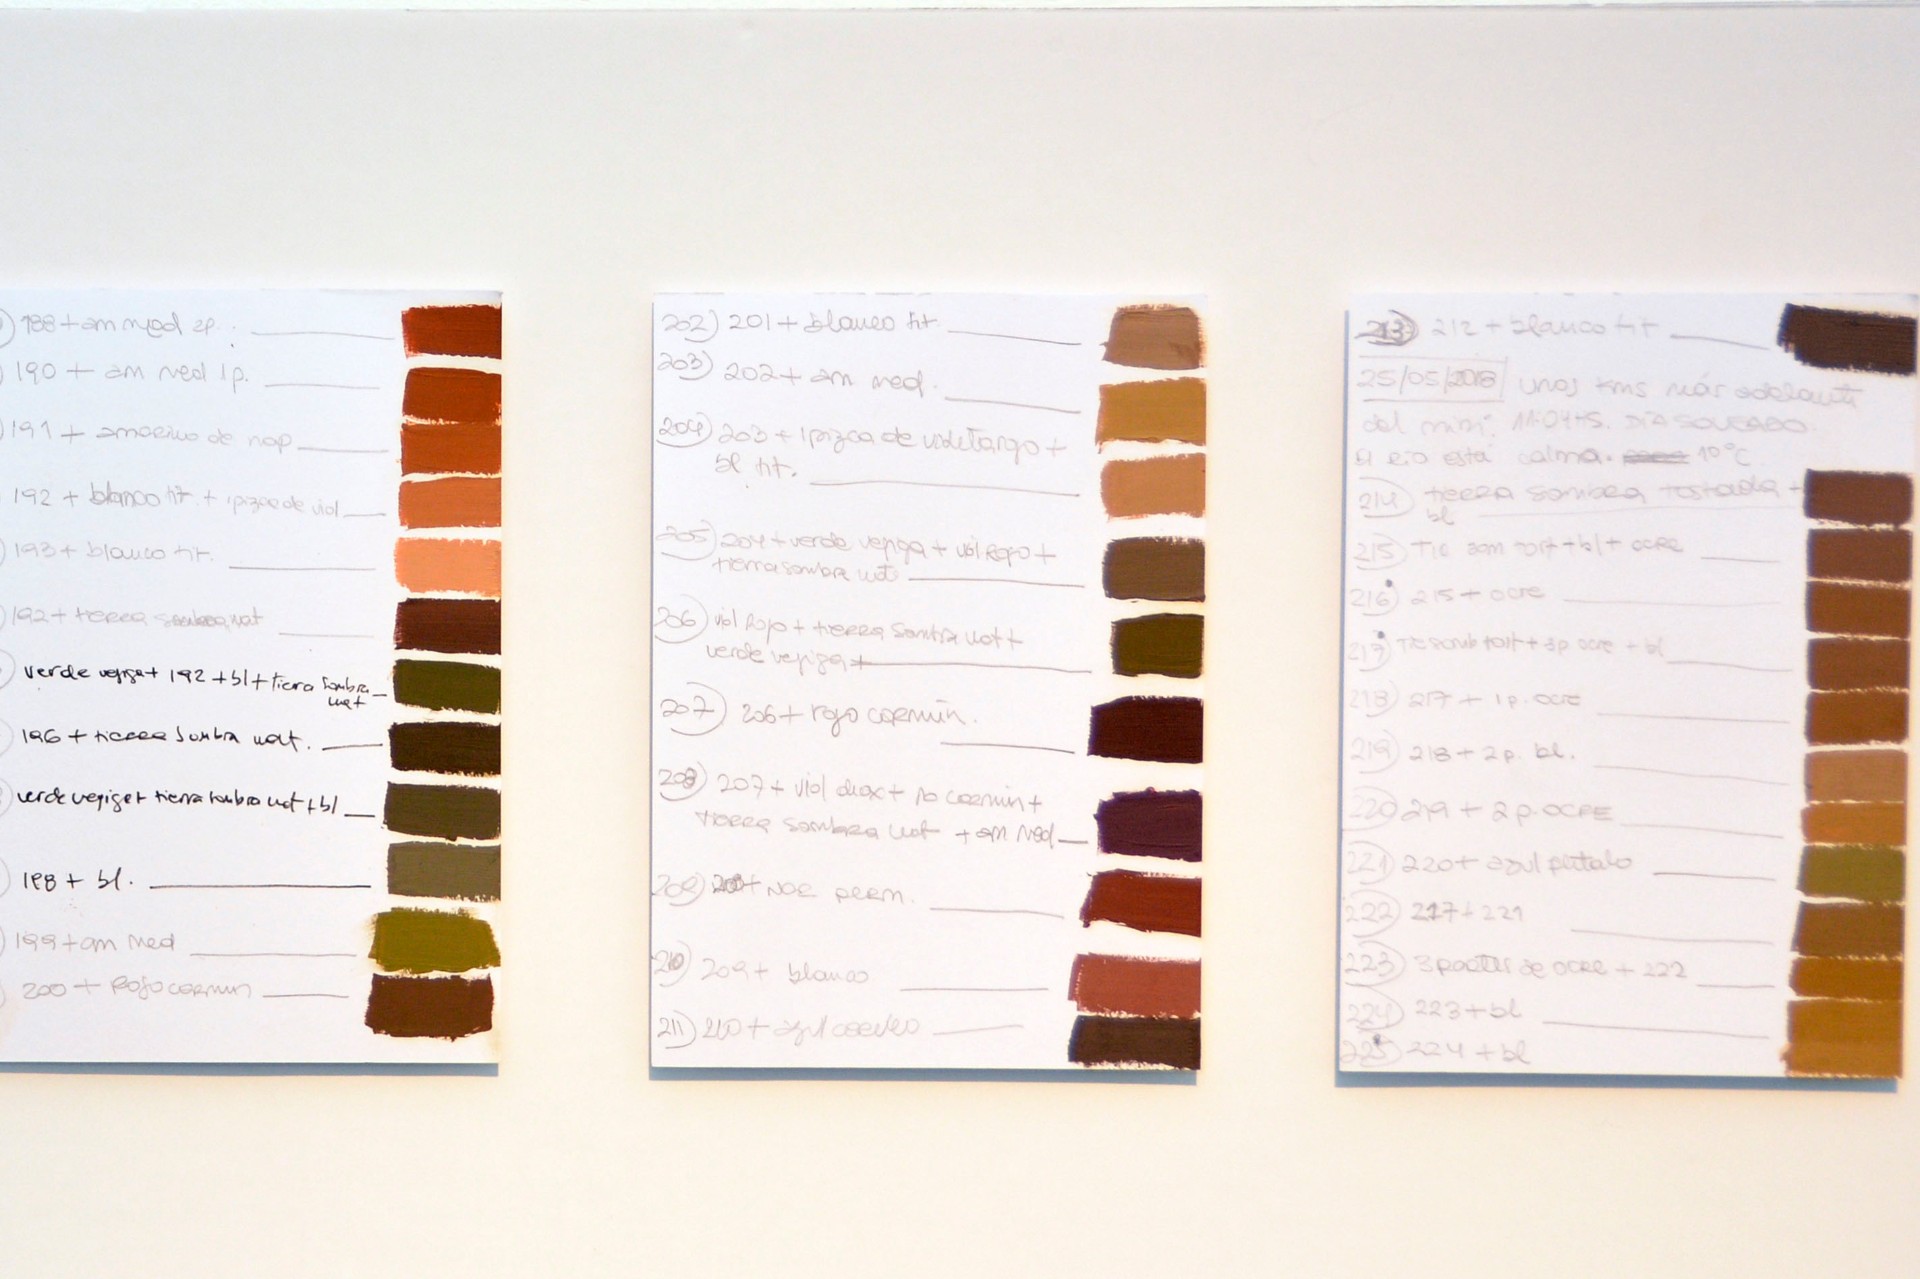 188 + am med 2p.
190 + am med 1p.
191 + amarillo de nap
192 + blanco tit. + 1 pizca de viol
193 + blanco tit.
192 + tierra sombra nat
verde vejiga + 192 + bl + tierra sombra
nat
196 + tierra sombra nat.
verde vejiga + tierra sombra nat + bl
198 + bl.
199 + am med
200 + Rojo carmin
202) 201 + blanco tit.
203) 202 + am med.
204) 203 + 1 pizca de +
bl tit.
205) 204 + verde vejiga + viol Rojo +
tierra sombra nat
206) viol Rojo + tierra sombra nat +
verde vejiga +
207) 206 + rojo carmin.
208) 207 + viol diox + ro carmin +
tierra sombra nat + am med
209) 208 + nar perm.
210) 209 + blanco
211) 210 + azul ceruleo
213) 212 + blanco tit
25/05/2018 unos kms más adelante
del mini. 11:04HS. DÍA SOLEADO.
El Río está calmo. 10°C
214) tierra sombra tostada +
bl
215) tie som tost + bl + ocre
216) 215 + ocre
217) tie somb tost + 3p ocre + bl
218) 217 + 1p. ocre
219) 218 + 2p. bl.
220) 219 + 2p. OCRE
221) 220 + azul phtalo
222) 217 + 221
223) 3 partes de ocre + 222
224) 223 + bl
225) 224 + bl